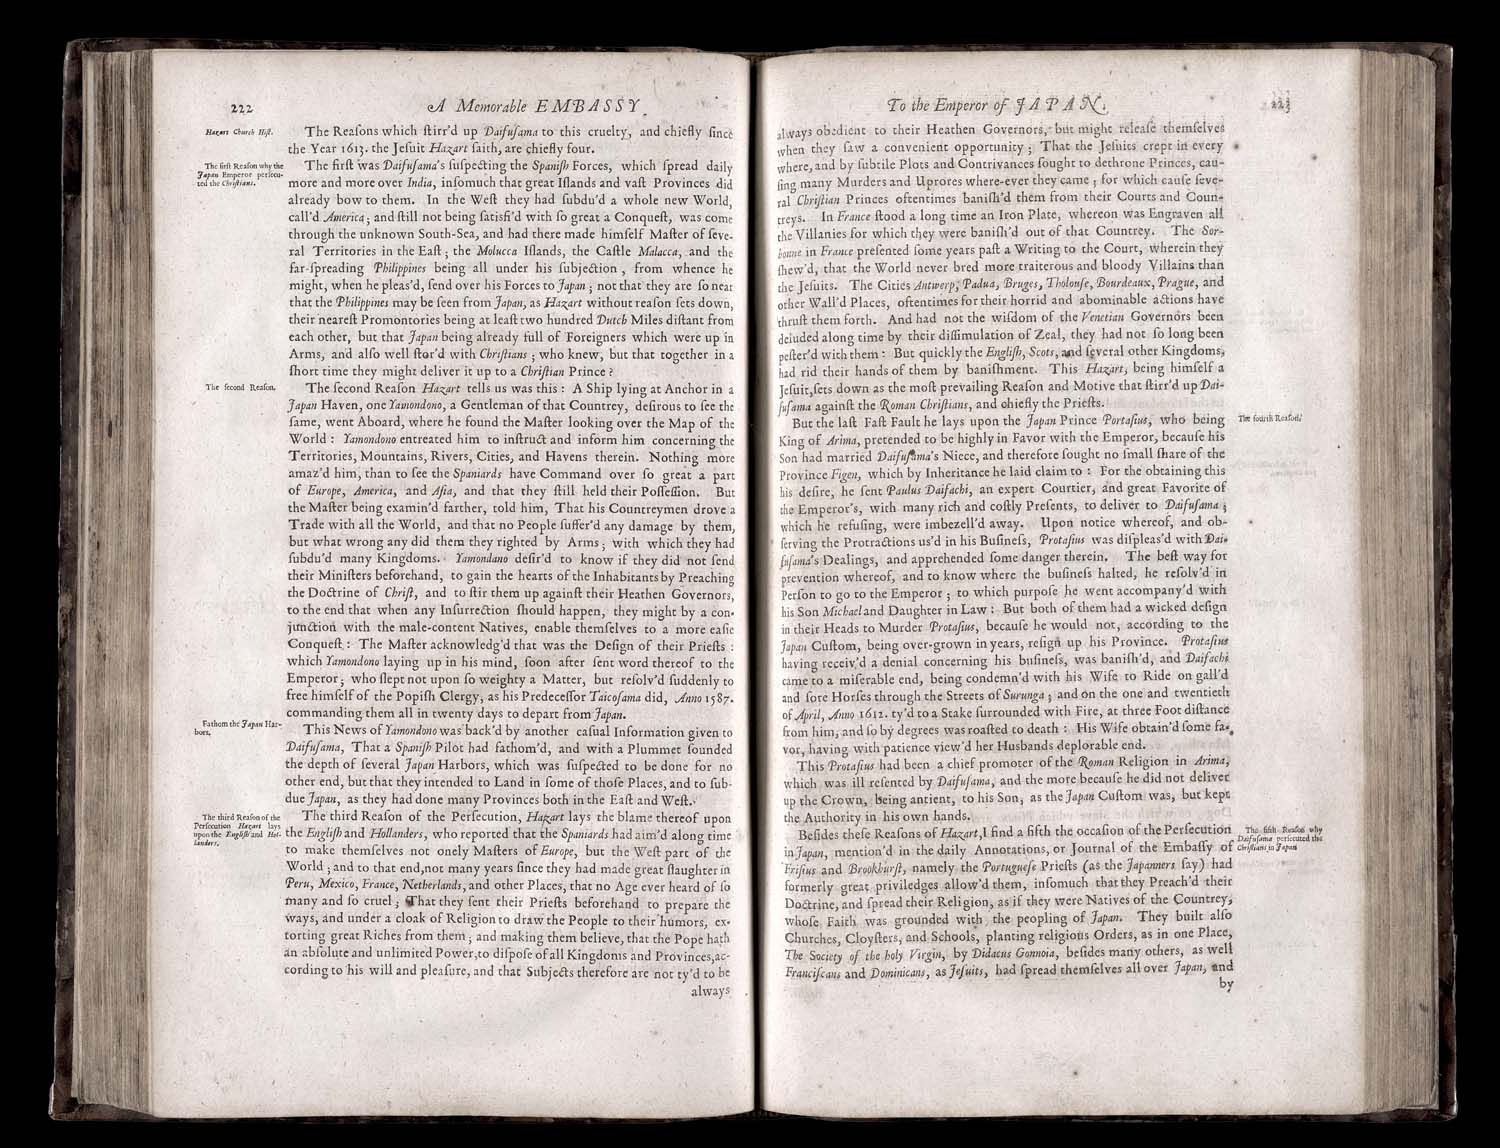 222
A Memorable EMBASSY
Hazart Church Hist.
The Reaſons which ſtirr'd up Daifuſama to this cruelty, and chiefly ſince
the Year 1613. the Jeſuit Hazart ſaith, are chiefly four.
The firſt Reaſon why the
Japan Emperor perſecu-
ted the Chriſtians.
The firſt was Daifuſama's ſuſpecting the Spaniſh Forces, which ſpread daily
more and more over India, inſomuch that great Iſlands and vaſt Provinces did
already bow to them. In the Weſt they had ſubdu'd a whole new World,
call'd America; and ſtill not being ſatisfi'd with ſo great a Conqueſt, was come
through the unknown South-Sea, and had there made himſelf Maſter of ſeve-
ral Territories in the Eaſt; the Molucca Iſlands, the Caſtle Malacca, and the
far-ſpreading Philippines being all under his ſubjection, from whence he
might, when he pleas'd, ſend over his Forces to Japan; not that they are ſo near
that the Philippines may be ſeen from Japan, as Hazart without reaſon ſets down,
their neareſt Promontories being at leaſt two hundred Dutch Miles diſtant from
each other, but that Japan being already full of Foreigners which were up in
Arms, and alſo well ſtor'd with Chriſtians; who knew, but that together in a
ſhort time they might deliver it up to a Chriſtian Prince?
The ſecond Reaſon.
The ſecond Reaſon Hazart tells us was this: A Ship lying at Anchor in a
Japan Haven, one Yamondono, a Gentleman of that Countrey, deſirous to ſee the
ſame, went Aboard, where he found the Maſter looking over the Map of the
World: Yamondono entreated him to inſtruct and inform him concerning the
Territories, Mountains, Rivers, Cities, and Havens therein. Nothing more
amaz'd him, than to ſee the Spaniards have Command over ſo great a part
of Europe, America, and Aſia, and that they ſtill held their Poſſeſſion. But
the Maſter being examin'd farther, told him, That his Countreymen drove a
Trade with all the World, and that no People ſuffer'd any damage by them,
but what wrong any did them they righted by Arms; with which they had
ſubdu'd many Kingdoms. Yamondano deſir'd to know if they did not ſend
their Miniſters beforehand, to gain the hearts of the Inhabitants by Preaching
the Doctrine of Chriſt, and to ſtir them up againſt their Heathen Governors,
to the end that when any Inſurrection ſhould happen, they might by a con-
junction with the male-content Natives, enable themſelves to a more eaſie
Conqueſt: The Maſter acknowledg'd that was the Deſign of their Prieſts:
which Yamondono laying up in his mind, ſoon after ſent word thereof to the
Emperor; who ſlept not upon ſo weighty a Matter, but reſolv'd ſuddenly to
free himſelf of the Popiſh Clergy, as his Predeceſſor Taicoſama did, Anno 1587.
commanding them all in twenty days to depart from Japan.
Fathom the Japan Har-
bors.
This News of Yamondono was back'd by another caſual Information given to
Daifuſama, That a Spaniſh Pilot had fathom'd, and with a Plummet ſounded
the depth of ſeveral Japan Harbors, which was ſuſpected to be done for no
other end, but that they intended to Land in ſome of thoſe Places, and to ſub-
due Japan, as they had done many Provinces both in the Eaſt and Weſt.
The third Reaſon of the
Perſecution Hazart lays
upon the Engliſh and Hol-
landers.
The third Reaſon of the Perſecution, Hazart lays the blame thereof upon
the Engliſh and Hollanders, who reported that the Spaniards had aim'd along time
to make themſelves not onely Maſters of Europe, but the Weſt part of the
World; and to that end, not many years ſince they had made great ſlaughter in
Peru, Mexico, France, Netherlands, and other Places, that no Age ever heard of ſo
many and ſo cruel; That they ſent their Prieſts beforehand to prepare the
ways, and under a cloak of Religion to draw the People to their humors, ex-
torting great Riches from them; and making them believe, that the Pope hath
an abſolute and unlimited Power, to diſpoſe of all Kingdoms and Provinces, ac-
cording to his will and pleaſure, and that Subjects therefore are not ty'd to be
always
To the Emperor of JAPAN.
223
always obedient to their Heathen Governors, but might releaſe themſelves
when they ſaw a convenient opportunity; That the Jeſuits crept in every
where, and by ſubtile Plots and Contrivances ſought to dethrone Princes, cau-
ſing many Murders and Uprores where-ever they came; for which cauſe ſeve-
ral Chriſtian Princes oftentimes baniſh'd them from their Courts and Coun-
treys. In France ſtood a long time an Iron Plate, whereon was Engraven all
the Villanies for which they were baniſh'd out of that Countrey. The Sor-
bonne in France preſented ſome years paſt a Writing to the Court, wherein they
ſhew'd, that the World never bred more traiterous and bloody Villains than
the Jeſuits. The Cities Antwerp, Padua, Bruges, Tholouſe, Bourdeaux, Prague, and
other Wall'd Places, oftentimes for their horrid and abominable actions have
thruſt them forth. And had not the wiſdom of the Venetian Governors been
deluded along time by their diſſimulation of Zeal, they had not ſo long been
peſter'd with them: But quickly the Engliſh, Scots, and ſeveral other Kingdoms,
had rid their hands of them by baniſhment. This Hazart, being himſelf a
Jeſuit, ſets down as the moſt prevailing Reaſon and Motive that ſtirr'd up Dai-
fuſama againſt the Roman Chriſtians, and chiefly the Prieſts.
The fourth Reaſon.
But the laſt Faſt Fault he lays upon the Japan Prince Portaſius, who being
King of Arima, pretended to be highly in Favor with the Emperor, becauſe his
Son had married Daifuſama's Niece, and therefore ſought no ſmall ſhare of the
Province Figen, which by Inheritance he laid claim to: For the obtaining this
his deſire, he ſent Paulus Daifachi, an expert Courtier, and great Favorite of
the Emperor's, with many rich and coſtly Preſents, to deliver to Daifuſama;
which he refuſing, were imbezell'd away. Upon notice whereof, and ob-
ſerving the Protractions us'd in his Buſineſs, Protaſius was diſpleas'd with Dai-
fuſama's Dealings, and apprehended ſome danger therein. The beſt way for
prevention whereof, and to know where the buſineſs halted, he reſolv'd in
Perſon to go to the Emperor; to which purpoſe he went accompany'd with
his Son Michael and Daughter in Law: But both of them had a wicked deſign
in their Heads to Murder Protaſius, becauſe he would not, according to the
Japan Cuſtom, being over-grown in years, reſign up his Province. Protaſius
having receiv'd a denial concerning his buſineſs, was baniſh'd, and Daifachi
came to a miſerable end, being condemn'd with his Wife to Ride on gall'd
and ſore Horſes through the Streets of Surunga; and on the one and twentieth
of April, Anno 1612. ty'd to a Stake ſurrounded with Fire, at three Foot diſtance
from him, and ſo by degrees was roaſted to death: His Wife obtain'd ſome fa-
vor, having with patience view'd her Husbands deplorable end.
This Protaſius had been a chief promoter of the Roman Religion in Arima,
which was ill reſented by Daifuſama, and the more becauſe he did not deliver
up the Crown, being antient, to his Son, as the Japan Cuſtom was, but kept
the Authority in his own hands.
The fifth Reaſon why
Daifuſama perſecuted the
Chriſtians in Japan
Beſides theſe Reaſons of Hazart, I find a fifth the occaſion of the Perſecution
in Japan, mention'd in the daily Annotations, or Journal of the Embaſſy of
Friſius and Brookhurſt, namely the Portugueſe Prieſts (as the Japanners ſay) had
formerly great priviledges allow'd them, inſomuch that they Preach'd their
Doctrine, and ſpread their Religion, as if they were Natives of the Countrey,
whoſe Faith was grounded with the peopling of Japan. They built alſo
Churches, Cloyſters, and Schools, planting religious Orders, as in one Place,
The Society of the holy Virgin, by Didacus Gonnoia, beſides many others, as well
Franciſcans and Dominicans, as Jeſuits, had ſpread themſelves all over Japan, and
by